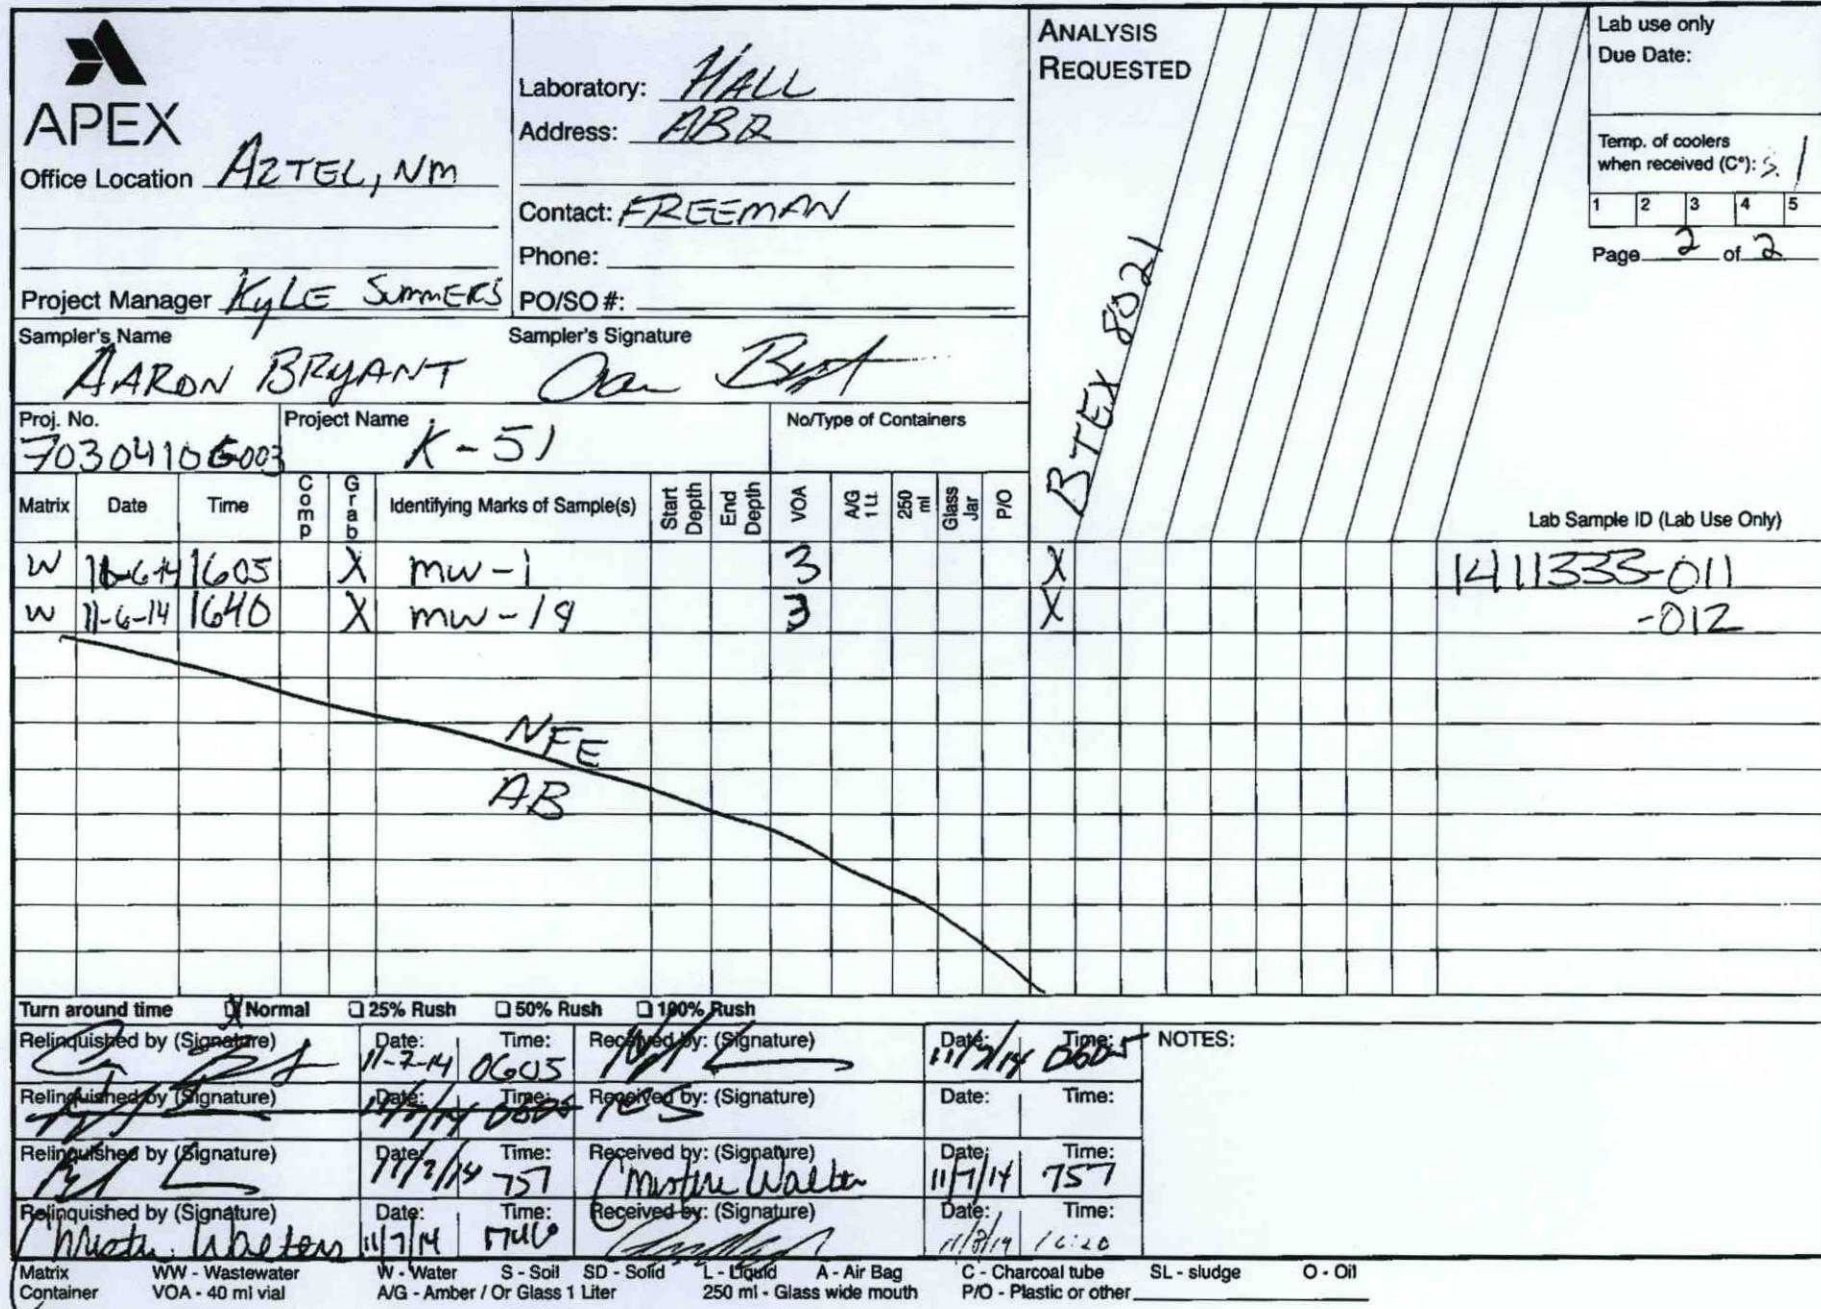 APEX
Office Location AZTEC, NM
Project Manager KYLE SUMMERS
Laboratory: HALL
Address: ABQ
Contact: FREEMAN
Phone:
PO/SO #:
ANALYSIS
REQUESTED
BTEX 8021
Lab use only
Due Date:
Temp. of coolers
when received (C°): 5.1
1 2 3 4 5
Page 2 of 2
Sampler's Name
AARON BRYANT
Sampler's Signature
Proj. No.
Project Name K-51
No/Type of Containers
Matrix Date Time Comp Grab Identifying Marks of Sample(s) Start Depth End Depth VOA A/G 1 Lt. 250 ml Glass Jar P/O Lab Sample ID (Lab Use Only)
W 11-6-14 1605 X MW-1 3 X 1411333-011
W 11-6-14 1640 X MW-19 3 X -012
NFE
AB
Turn around time X Normal 25% Rush 50% Rush 100% Rush
Relinquished by (Signature) Date: 11-7-14 Time: 0605 Received by: (Signature) Date: 11/7/14 Time: 0605
Relinquished by (Signature) Date: 11/7/14 Time: 0605 Received by: (Signature) Date: Time:
Relinquished by (Signature) Date: 11/7/14 Time: 757 Received by: (Signature) Christine Walters Date: 11/7/14 Time: 757
Relinquished by (Signature) Christine Walters Date: 11/7/14 Time: Received by: (Signature) Date: Time:
NOTES:
Matrix WW - Wastewater W - Water S - Soil SD - Solid L - Liquid A - Air Bag C - Charcoal tube SL - sludge O - Oil
Container VOA - 40 ml vial A/G - Amber / Or Glass 1 Liter 250 ml - Glass wide mouth P/O - Plastic or other